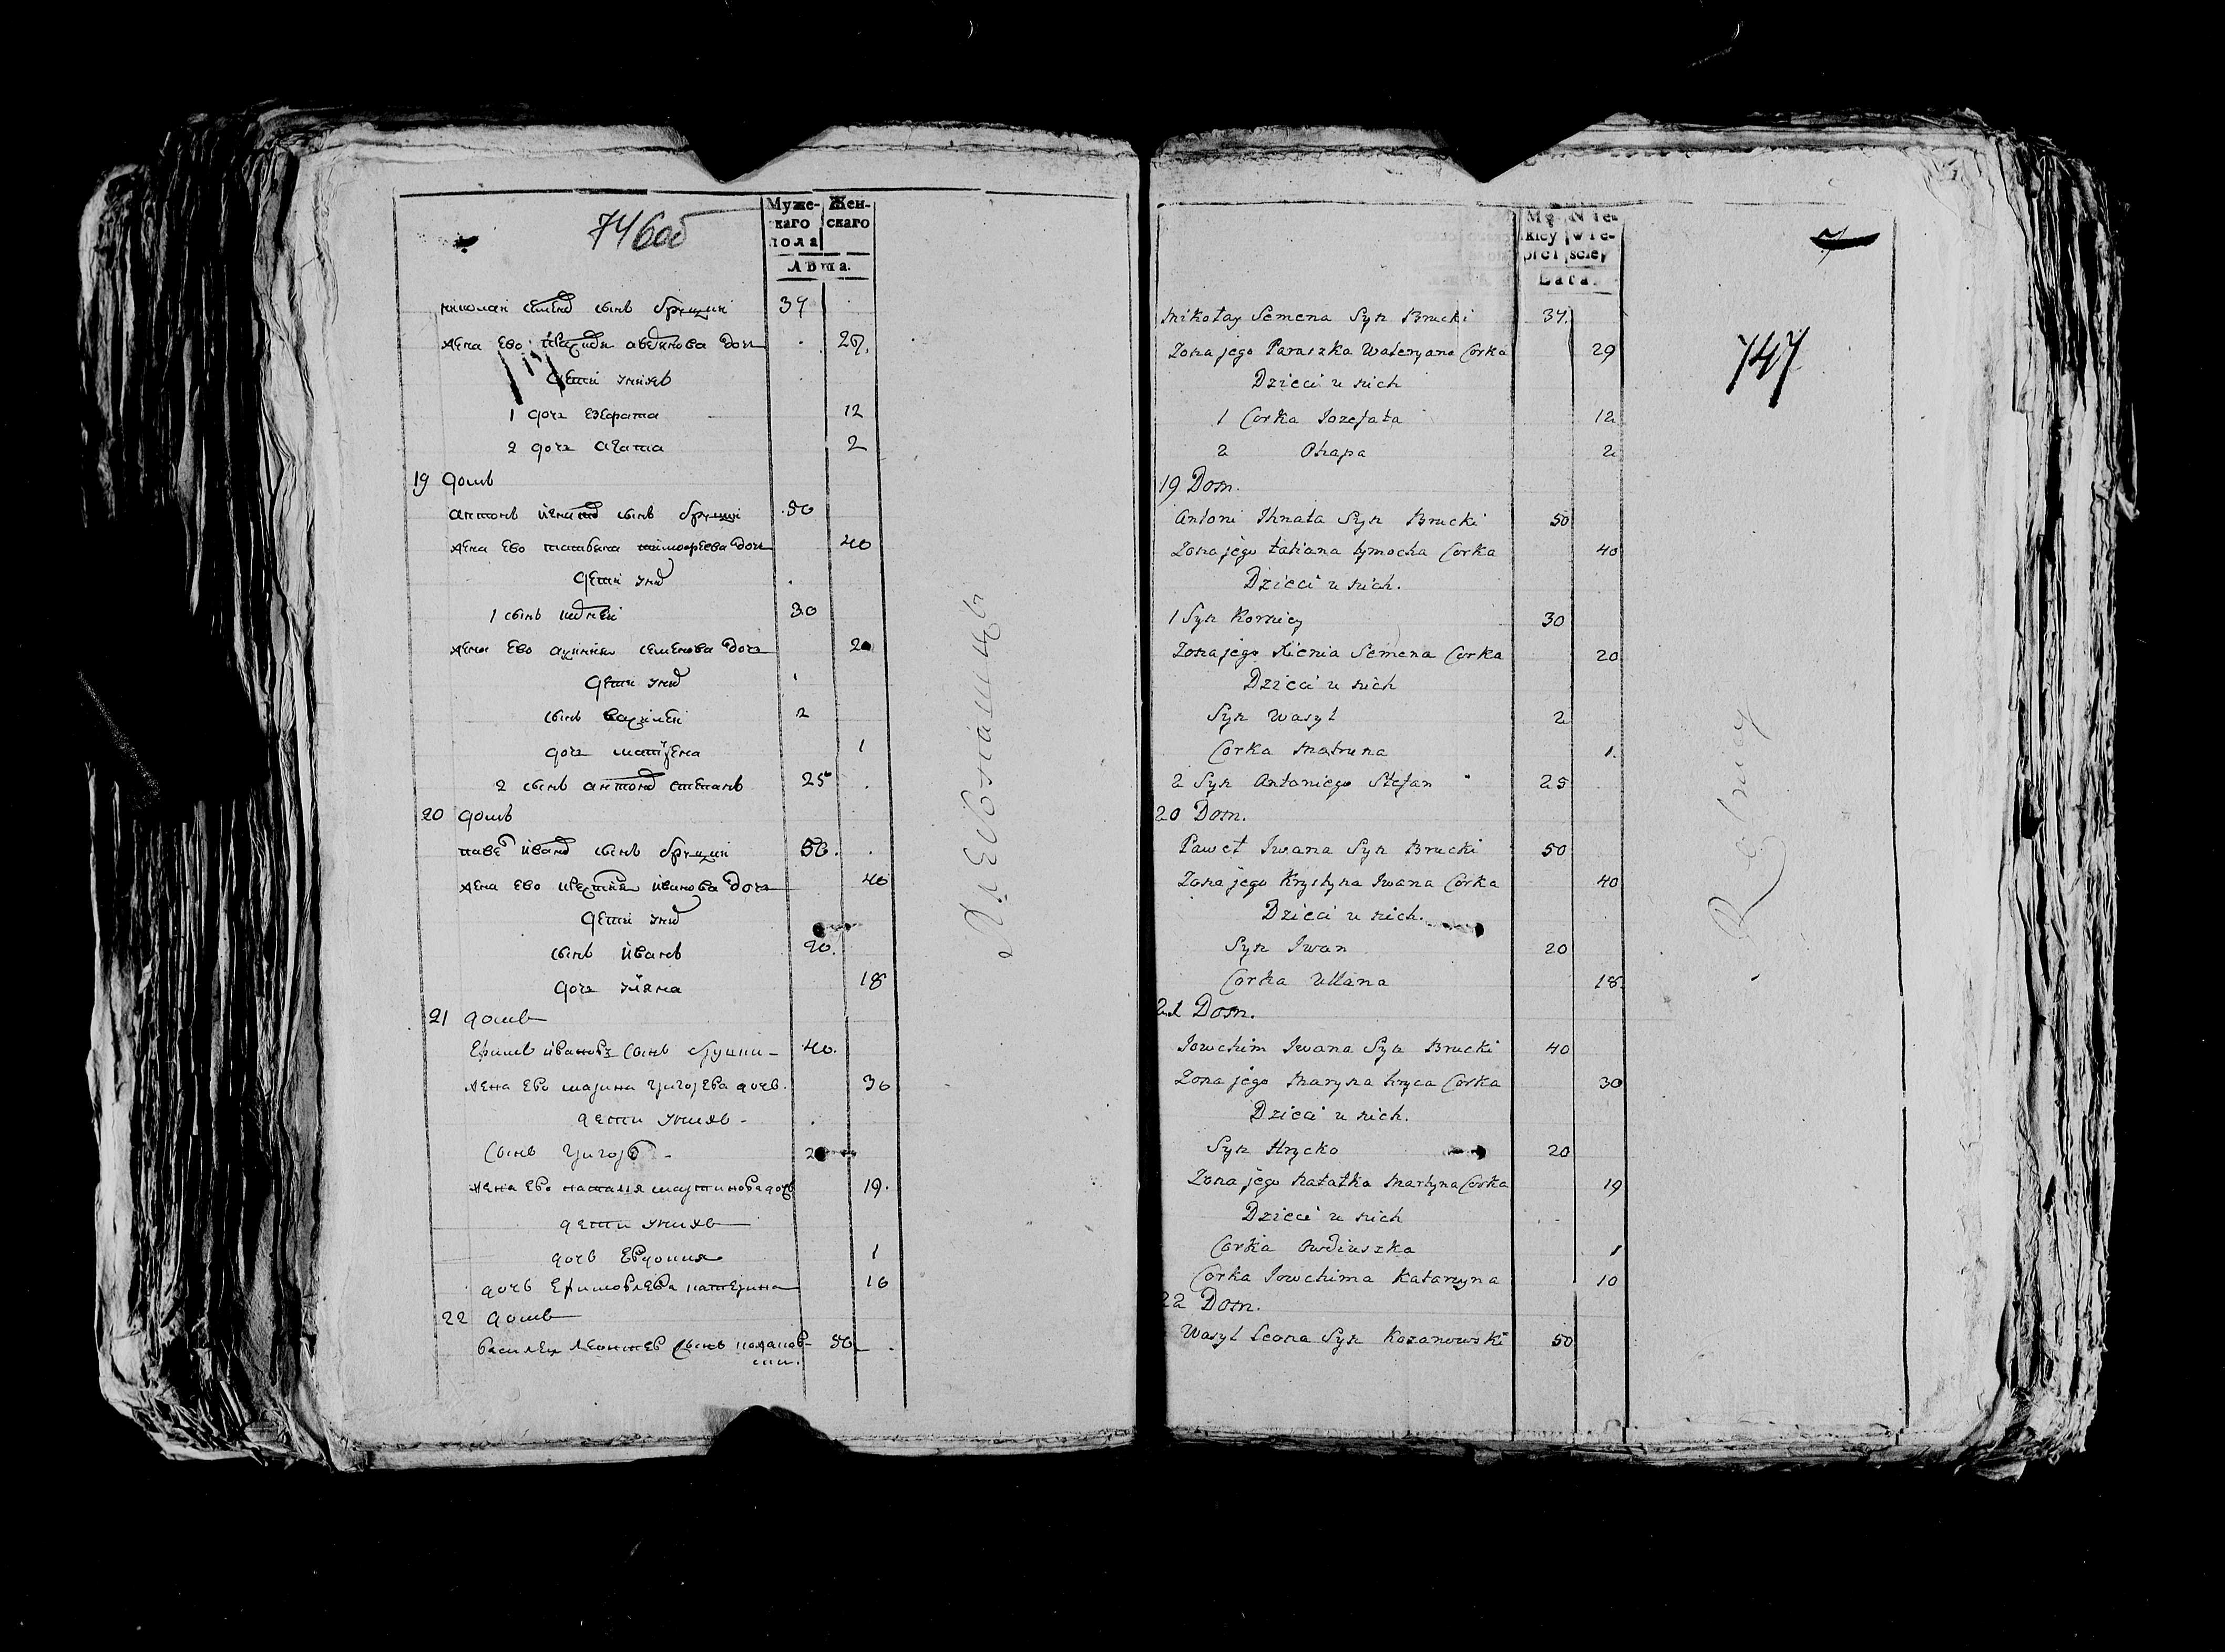 746об
Муже- Жен-
каго скаго
пола
Лѣта.
николаи сынъ бруцки 37
жена Ево дочь 29.
дети унихъ
1 дочь 12
2 дочь агата 2
19 домъ
антонъ сынъ бруцкі 50
жена Ево татьяна тимофеева дочь 40
дети
1 сынъ 30
жена Ево семенова дочь 20
дети
сынъ василеі 2
дочь 1
2 сынъ степанъ 25
20 домъ
сынъ бруцки 50.
жена Ево иванова дочь 40
дети
сынъ иванъ 20.
дочь уляна 18
21 домъ
Ефимъ ивановъ сынъ бруцки 40.
жена Ево марина григорева дочь. 30
дети унихъ
сынъ 20
жена Ево наталя мартинова дочь 19.
дети унихъ
дочь Евдокия 1
дочь катерина 10
22 домъ
василеи леонтев сынъ кожанов-
ски. 50
Mę- Nie-
kiey wie-
płci sciey
Lata.
747
Mikołay Semena Syn Brucki 37.
Zona jego Paraszka Waleryana Corka 29
Dzieci u nich
1 Corka Jozefata 12
2 Ohapa 2
19 Dom.
Antoni Ihnata Syn Brucki 50
Zona jego tatiana tymocha Corka 40
Dzieci u nich.
1 Syn Korniey 30
Zona jego Xienia Semena Corka 20
Dzieci u nich
Syn Wasyl 2
Corka Matruna 1.
2 Syn Antoniego Stefan 25
20 Dom.
Paweł Iwana Syn Brucki 50
Zona jego Krystyna Iwana Corka 40
Dzieci u nich.
Syn Iwan 20
Corka Ullana 18.
21 Dom.
Jowchim Iwana Syn Brucki 40
Zona jego Maryna hryca Corka 30
Dzieci u nich.
Syn Hrycko 20
Zona jego Natałka Martyna Corka 19
Dzieci u nich
Corka Owdiuszka 1
Corka Jowchima Katarzyna 10
22 Dom.
Wasyl Leona Syn Kozanowski 50